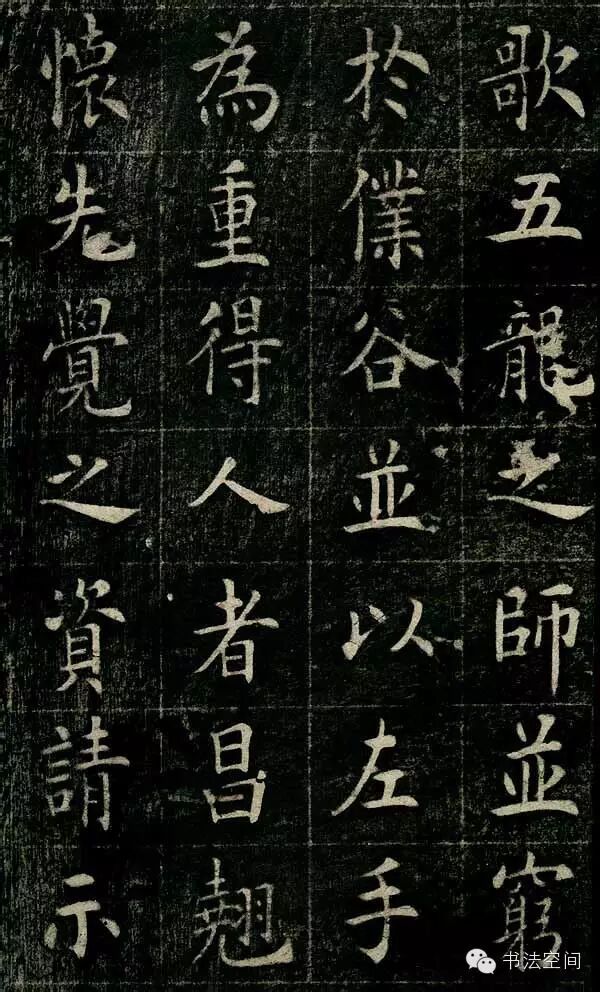 歌五龍之師並窮
於僕谷並以左手
為重得人者昌翹
懷先覺之資請示
书法空间